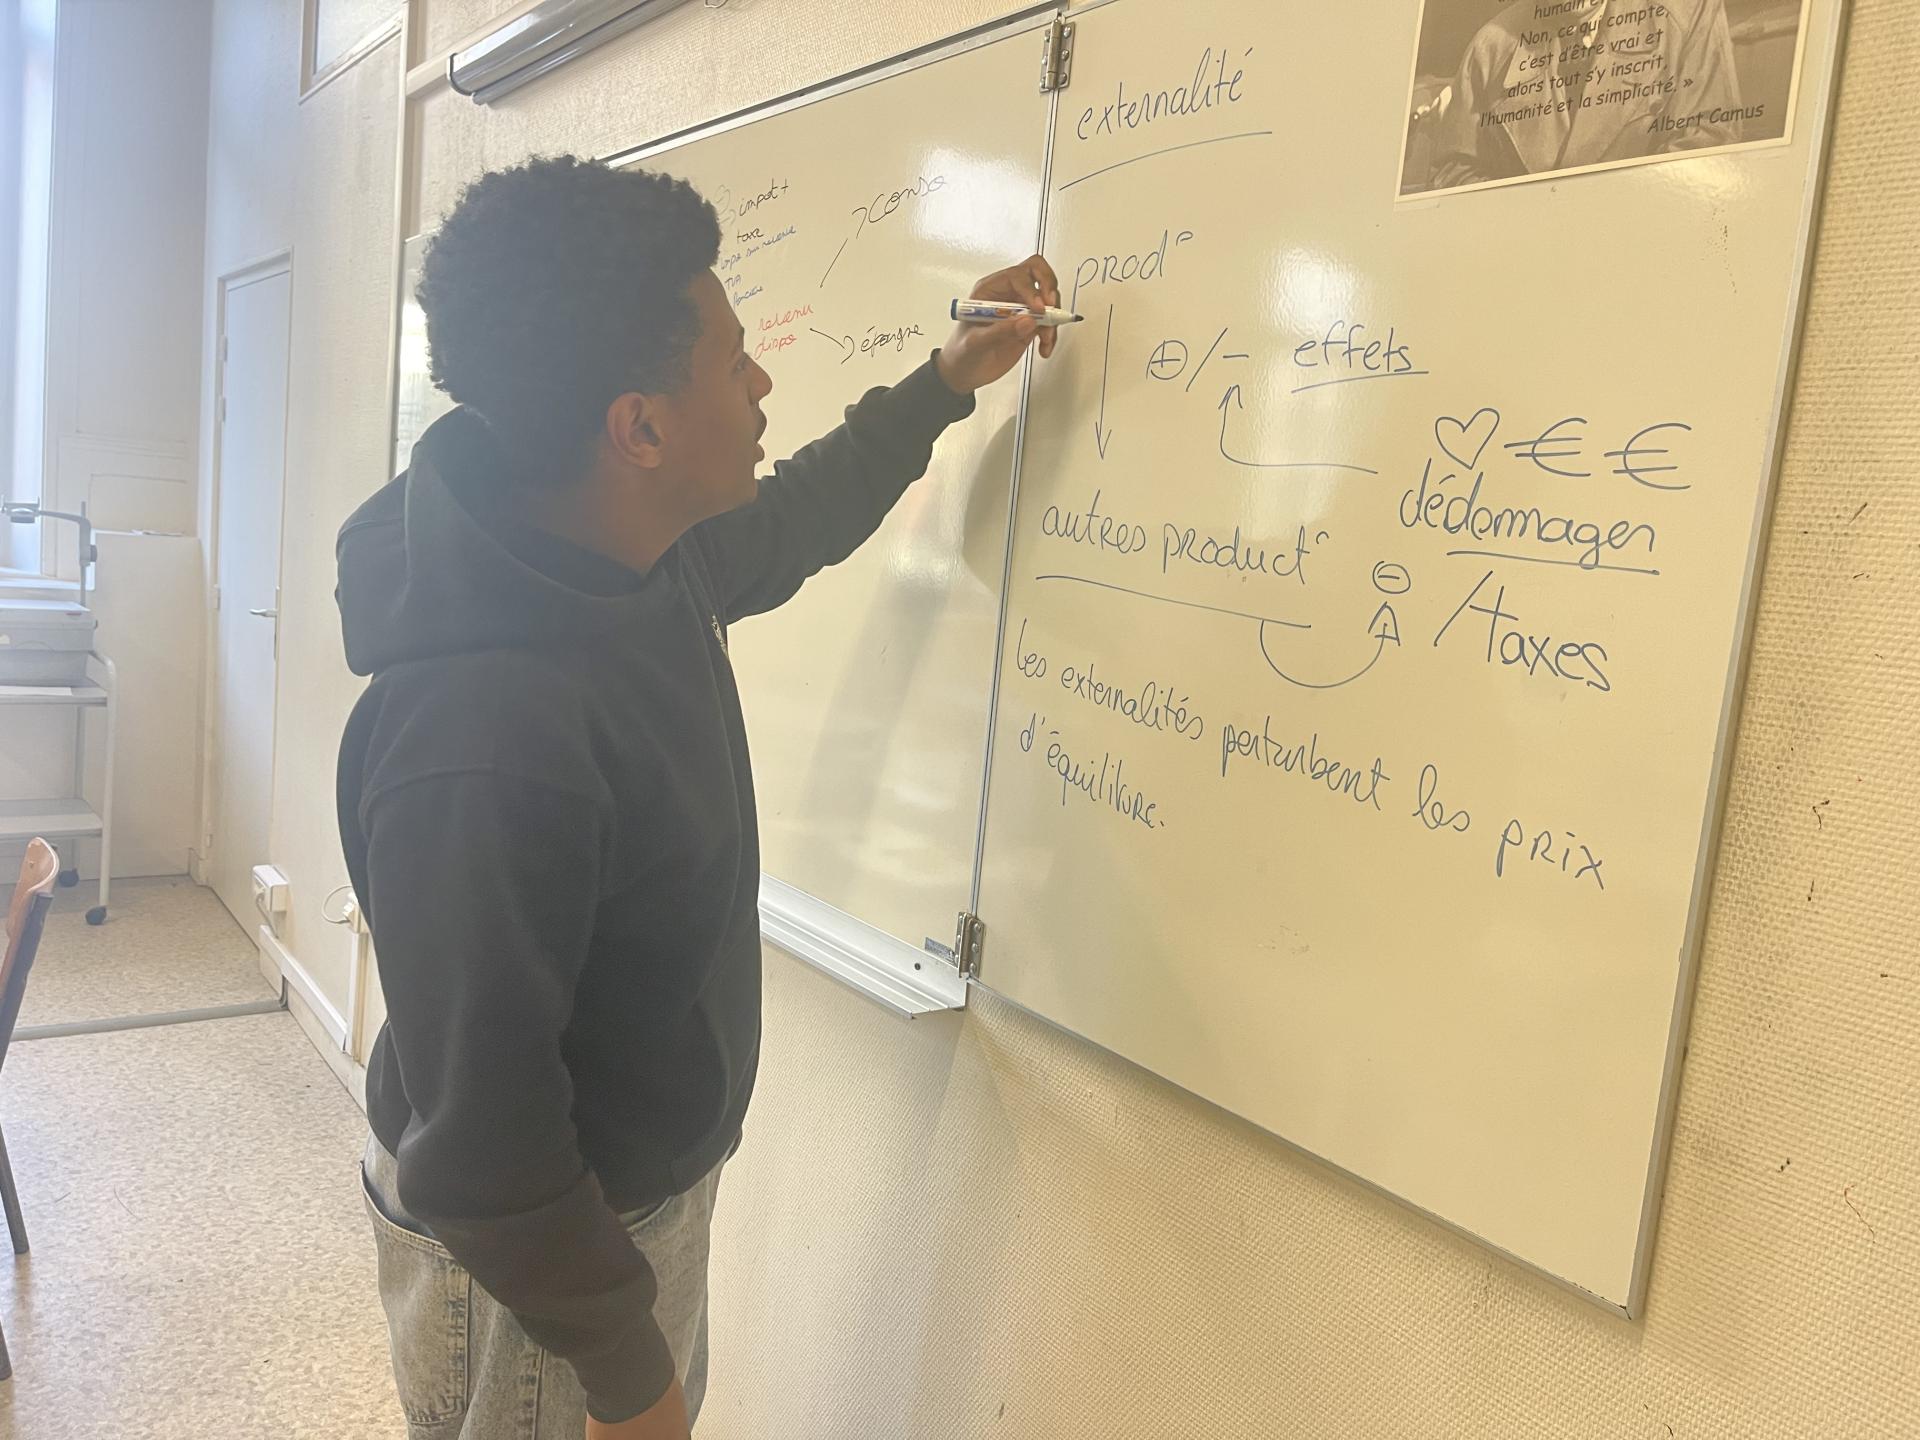 impot +
taxe
impot sur revenu
TVA
revenu
dispo
conso
épargne
externalité
prod°
⊕/- effets
♡ € €
dédommager
autres product°
⊖
/taxes
les externalités perturbent les prix
d'équilibre.
humain et
Non, ce qui compte,
c'est d'être vrai et
alors tout s'y inscrit,
l'humanité et la simplicité. »
Albert Camus